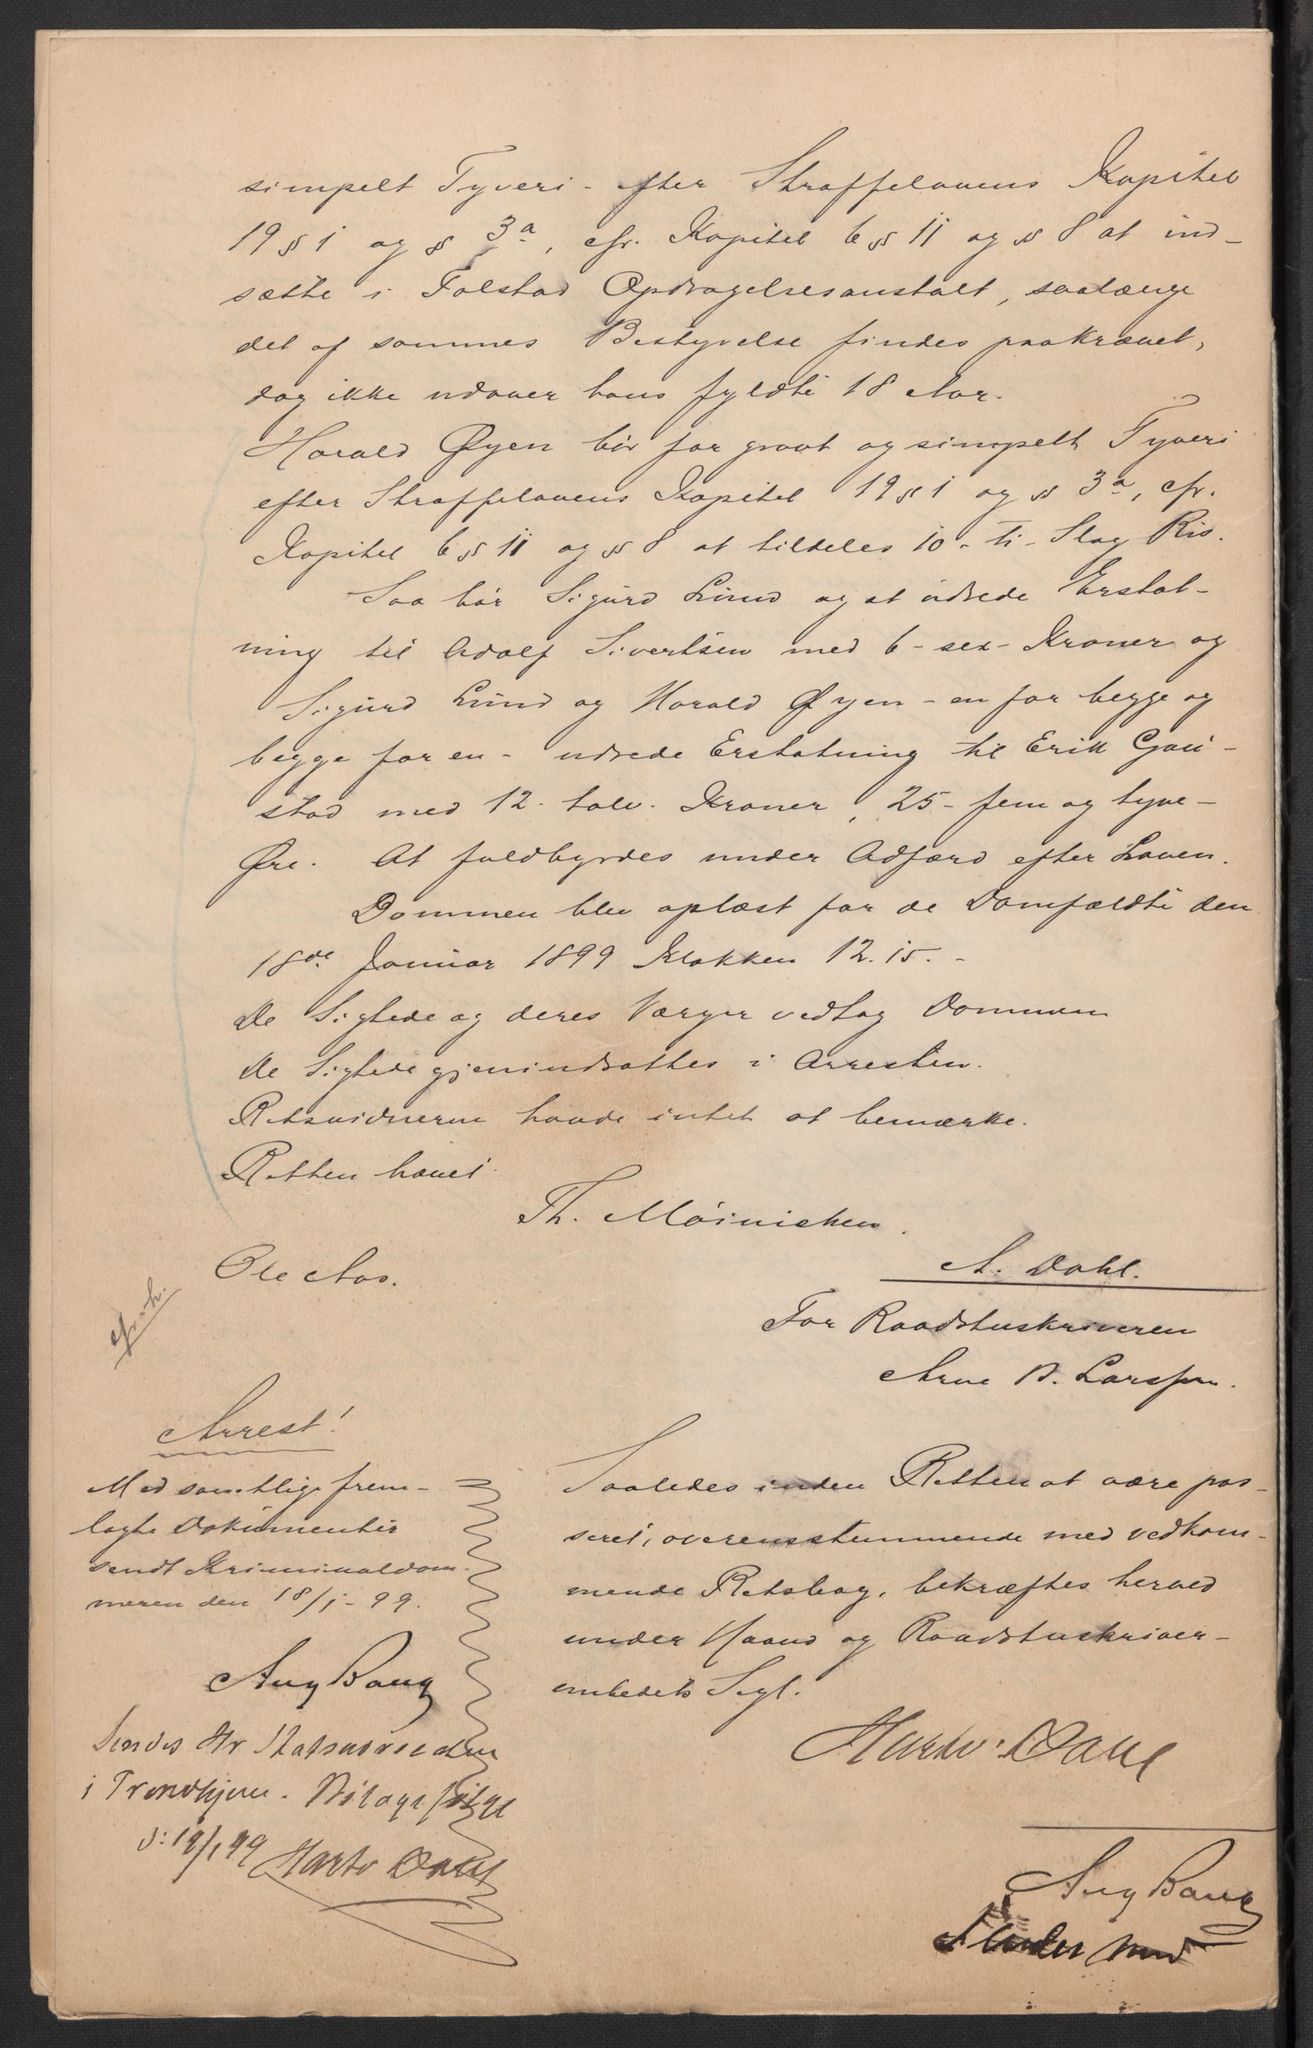 simpelt Tyveri - efter Straffelovens Kapitel
19 § 1 og § 3a, cfr. Kapitel 6 § 11 og § 8 at ind-
sætte i Falstad Opdragelsesanstalt, saalænge
det af sammes Bestyrelse findes paakrævet,
dog ikke udover hans fyldte 18 Aar.
Harald Øyen bør for grovt og simpelt Tyveri
efter Straffelovens Kapitel 19 § 1 og § 3a, cfr.
Kapitel 6 § 11 og § 8 at tildeles 10 - ti - Slag Ris.
Saa bør Sigurd Lund og at udrede Erstat-
ning til Adolf Sivertsen med 6 - sex - Kroner og
Sigurd Lund og Harald Øyen - en for begge og
begge for en - udrede Erstatning til Erik Gau-
stad med 12 - tolv - Kroner, 25 - fem og tyve -
Øre. At fuldbyrdes under Adfærd efter Loven.
Dommen blev oplæst for de Domfældte den
18de Januar 1899 Klokken 12.15. -
De Sigtede og deres Værger vedtog Dommen
De Sigtede gjenindsattes i Arresten.
Retsvidnerne havde intet at bemærke.
Retten hævet.
Th. Møinichen.
Ole Aas.
A. Dahl.
For Raadstuskriveren
Arne B. Larssen.
Arrest!
Med samtlige frem-
lagte Dokumenter
sendt Kriminaldom-
meren den 18/1 - 99.
Aug Bang
Sendes Hr Statsadvokaten
i Trondhjem. Bilage følge
d: 19/1 99 Hartv Dahl
Saaledes inden Retten at være pas-
seret, overensstemmende med vedkom-
mende Retsbog, bekræftes herved
under Haand og Raadstuskriver-
embedets Segl.
Hartv. Dahl
Aug Bang